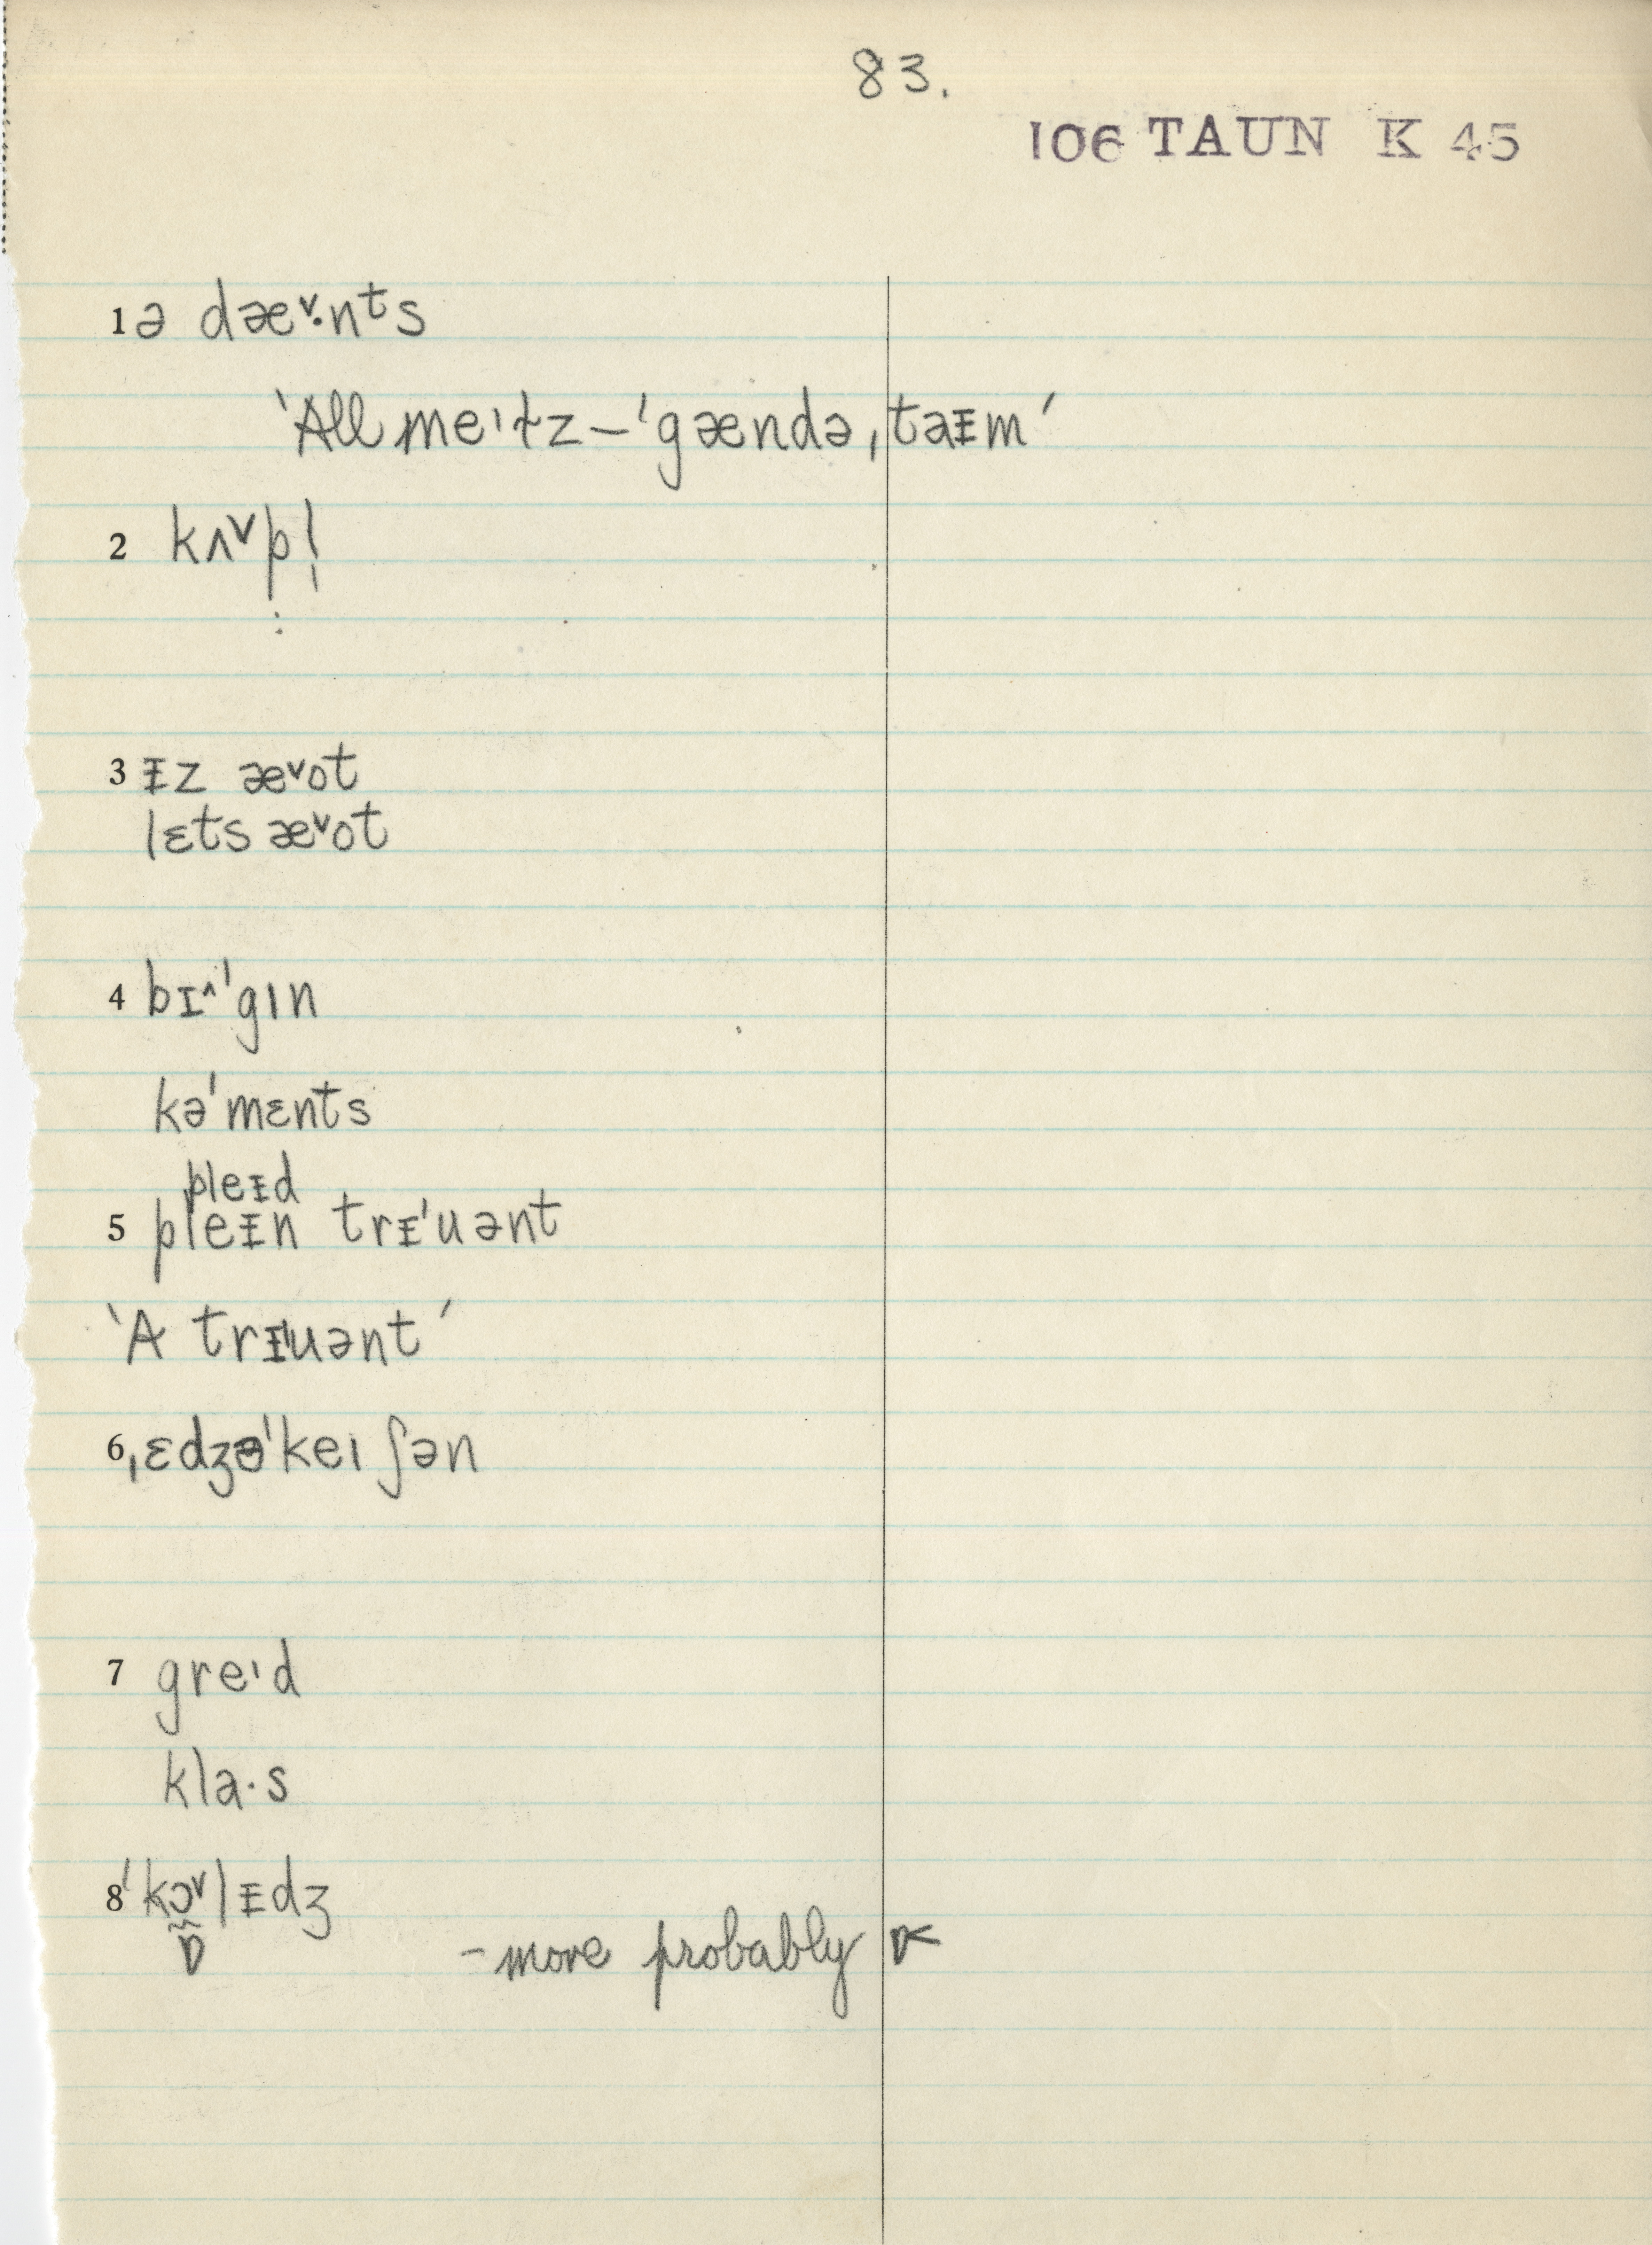 83.
106 TAUN K 45
1 ə dæ˅·nᵗs
‘All meˈɪtz – ˈgændəˌtaᵻm’
2 kʌ˅pl̩
3 ᵻz æ˅ot
lɛts æ˅ot
4 bɪ˄ˈgɪn
kəˈmɛnts
pleᵻd
5 pleᵻn trᵻˈuənt
‘A trᵻˈuənt’
6 ˌɛdʒəˈkeɪʃən
7 greɪd
kla·s
8 ˈkɔ˅lᵻdʒ
ɒ – more probably ɒ˂